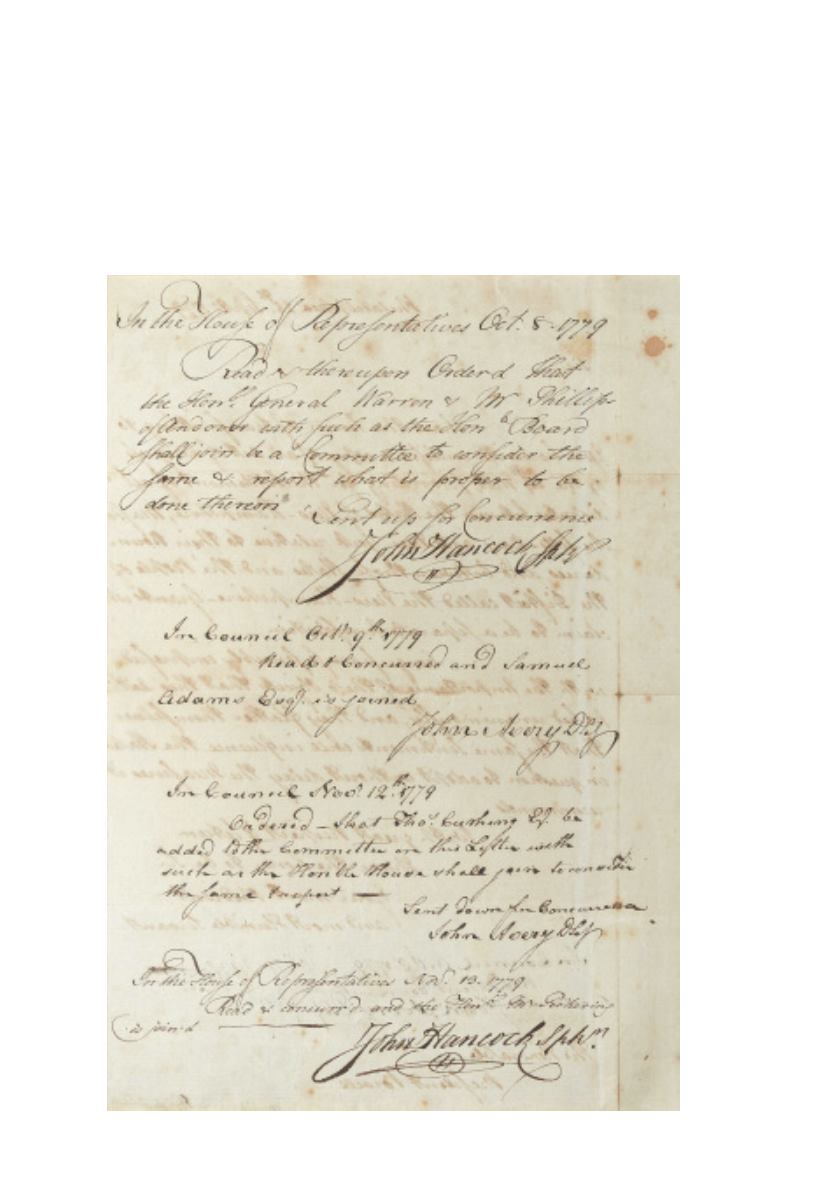 In the House of Representatives Oct. 8 1779
Read & thereupon Orderd That
the Honl. General Warren & Mr Phillips
of Andover with such as the Hon b Board
shall join be a Committee to consider the
same & report what is proper to be
done thereon
Sent up for Concurrence
John Hancock Spkr
In Council Octr. 9th 1779
Read & Concurred and Samuel
Adams Esqr. is joined
John Avery D Sy
In Council Novr. 12th 1779
Ordered - That Thos. Cushing Esq. be
added to the Committee on this Letter with
such as the Honble House shall join to consider
the same & report —
Sent down for Concurrence
John Avery D Sy
In the House of Representatives Novr. 13. 1779
Read & concurrd and the Honl. Mr Pickering
is joind
John Hancock Spkr.